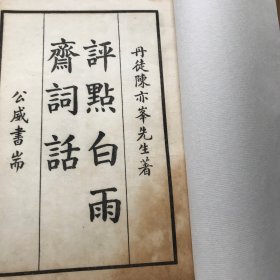 丹徒陳亦峯先生著
評點白雨
齋詞話
公威書耑